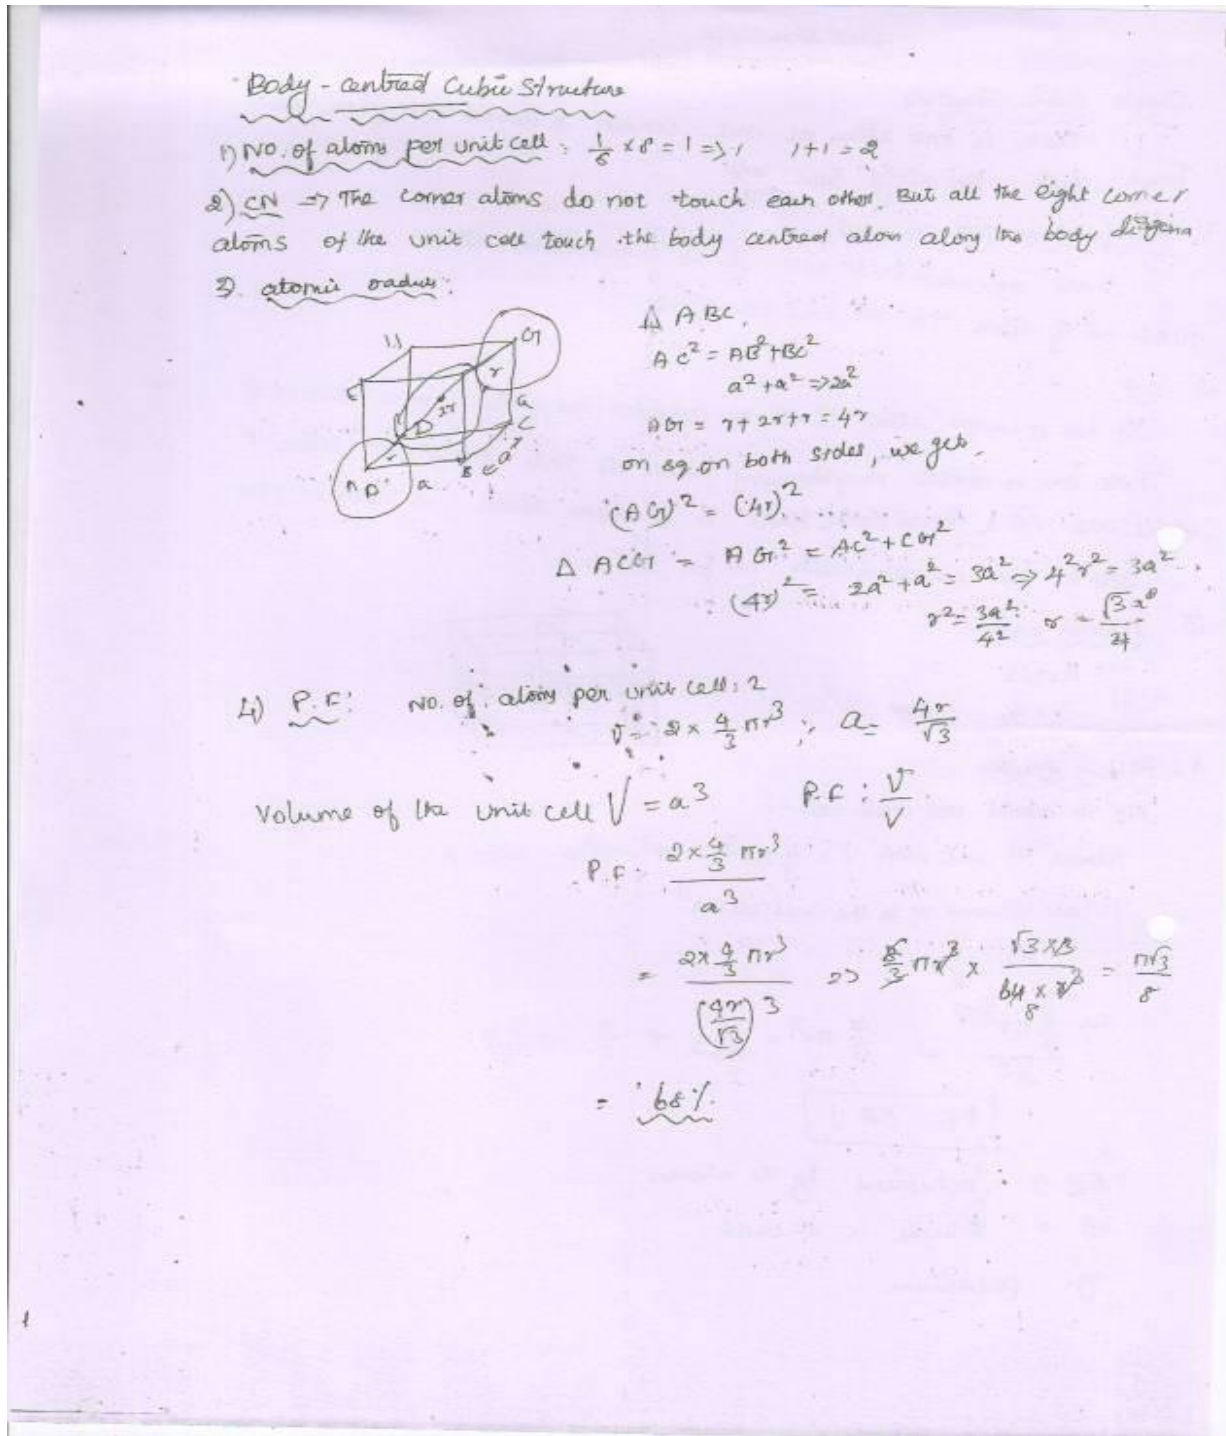 Body - centred Cubic Structure
1) No. of atoms per unit cell : 1/8 × 8 = 1 => 1 1+1 = 2
2) CN => The corner atoms do not touch each other. But all the eight corner
atoms of the unit cell touch the body centred atom along the body
3) atomic radius :
G
r
E
2r
a
D
C
B
a
a
Δ ABC,
AC² = AB² + BC²
a² + a² => 2a²
AG = r + 2r + r = 4r
on sq on both sides, we get,
(AG)² = (4r)²
Δ ACG = AG² = AC² + CG²
(4r)² = 2a² + a² = 3a² => 4²r² = 3a²
r² = 3a²/4² r =
4) P.F : No. of atoms per unit cell : 2
v = 2 × 4/3 πr³ ; a = 4r/√3
Volume of the unit cell V = a³ P.F : v/V
P.F : 2 × 4/3 πr³ / a³
= 2 × 4/3 πr³ / (4r/√3)³ => 8/3 πr³ × √3 × 3 / 64 × r³ = π√3/8
8
= 68%